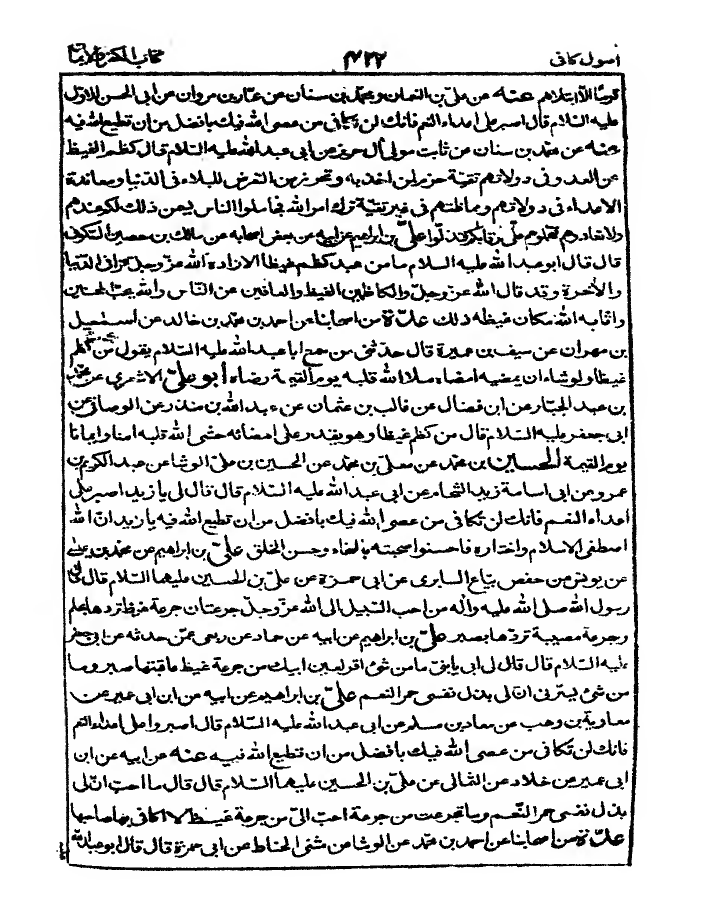 اصول کافی ۴۲۲ کتاب الکفر و الایمان
قومًا الّا ابتلاهم عنه عن علی بن النعمان و محمد بن سنان عن عمّار بن مروان عن ابی الحسن الاوّل
علیه السّلام قال اصبر علی اعداء النعم فانک لن تکافی من عصی الله فیک بافضل من ان تطیع الله فیه
عنه عن محمّد بن سنان عن ثابت مولی آل حریز عن ابی عبد الله علیه السّلام قال کظم الغیظ
عن العدو فی دولاتهم تقیّة حزم لمن اخذ به و تحرز من التعرض للبلاء فی الدّنیا و معاندة
الاعداء فی دولاتهم و مماظتهم فی غیر تقیّة ترک امر الله فجاملوا الناس یسمن ذلک لکم عندهم
ولا تعادوهم فتحملوهم علی رقابکم فتذلّوا علیّ بن ابراهیم عن ابیه عن بعض اصحابه عن مالک بن حصین السّکونی
قال قال ابو عبد الله علیه السّلام ما من عبد کظم غیظا الّا زاده الله عزّ وجل عزّا فی الدّنیا
والآخرة و قد قال الله عزّ وجلّ والکاظمین الغیظ والعافین عن النّاس والله یحبّ المحسنین
واثابه الله مکان غیظه ذلک عدّة من اصحابنا عن احمد بن محمّد بن خالد عن اسمعیل
بن مهران عن سیف بن عمیرة قال حدّثنی من سمع ابا عبد الله علیه السّلام یقول من کظم
غیظا ولو شاء ان یمضیه امضاه ملا الله قلبه یوم القیمة رضاه ابو علیّ الاشعری عن محمّد
بن عبد الجبّار عن ابن فضال عن غالب بن عثمان عن عبد الله بن منذر عن الوصافی عن
ابی جعفر علیه السّلام قال من کظم غیظا وهو یقدر علی امضائه حشی الله قلبه امنا وایمانا
یوم القیمة الحسین بن محمّد عن معلّی بن محمّد عن الحسن بن علیّ الوشا عن عبد الکریم بن
عمرو عن ابی اسامة زید الشّحام عن ابی عبد الله علیه السّلام قال قال لی یا زید اصبر علی
اعداء النعم فانک لن تکافی من عصی الله فیک بافضل من ان تطیع الله فیه یا زید انّ الله
اصطفی الاسلام واختاره فاحسنوا صحبته بالسخاء وحسن الخلق علیّ بن ابراهیم عن محمّد بن عیسی
عن یونس عن حفص بیّاع السابری عن ابی حمزة عن علیّ بن الحسین علیهما السّلام قال قال
رسول الله صلی الله علیه وآله من احب السّبیل الی الله عزّ وجلّ جرعتان جرعة غیظ تردها بحلم
وجرعة مصیبة تردّها بصبر علیّ بن ابراهیم عن ابیه عن حماد عن ربعی عمّن حدثه عن ابی جعفر
علیه السّلام قال قال لی ابی یا بنیّ ما من شئ اقرّ لعین ابیک من جرعة غیظ عاقبتها صبر وما
من شئ یسّرنی انّ لی بذل نفسی حمر النعم علیّ بن ابراهیم عن ابیه عن ابن ابی عمیر عن
معاویة بن وهب عن معاذ بن مسلم عن ابی عبد الله علیه السّلام قال اصبروا علی اعداء النعم
فانک لن تکافی من عصی الله فیک بافضل من ان تطیع الله فیه عنه عن ابیه عن ابن
ابی عمیر عن خلاد عن الثمالی عن علیّ بن الحسین علیهما السّلام قال قال ما احبّ انّ لی
بذل نفسی حمر النّعم وما تجرعت من جرعة احبّ الیّ من جرعة غیظ لا اکافی بها صاحبها
عدّة من اصحابنا عن احمد بن محمّد عن الوشا عن مثنی الحناط عن ابی حمزة قال قال ابو عبد الله